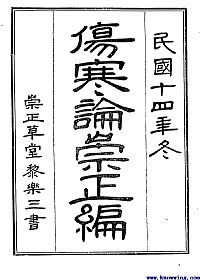 民國十四年冬
傷寒論崇正編
崇正草堂黎樂三書
www.knowing.com